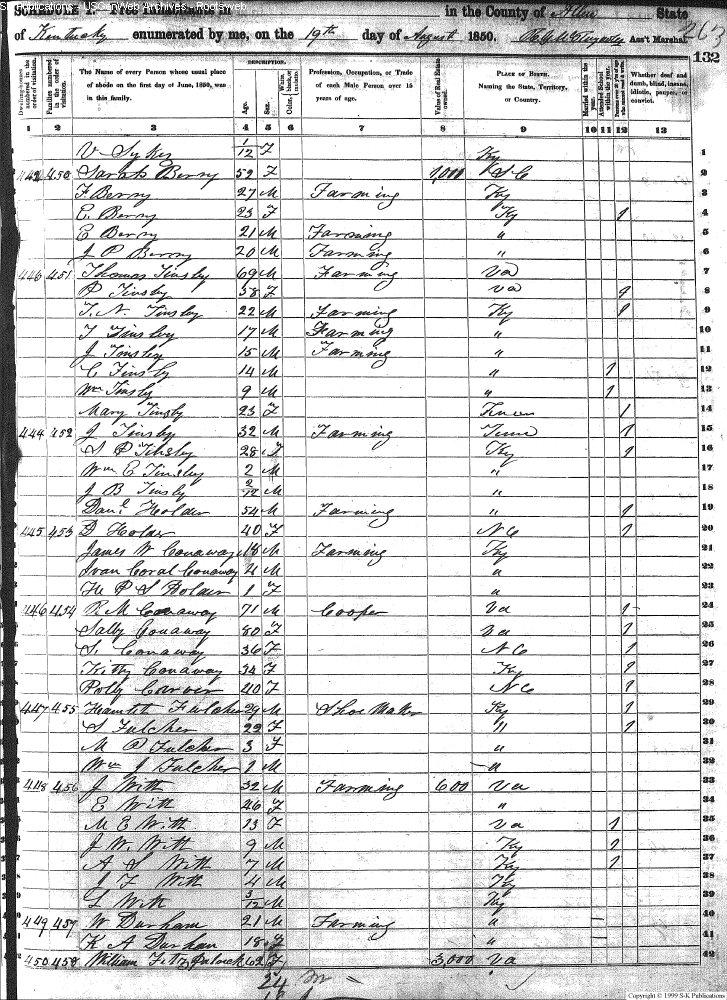 SCHEDULE I. Free Inhabitants in in the County of Allen State
of Kentucky enumerated by me, on the 19th day of August 1850. Ass't Marshal.
263
132
Dwelling-houses numbered in the order of visitation.
Families numbered in the order of visitation.
The Name of every Person whose usual place of abode on the first day of June, 1850, was in this family.
DESCRIPTION.
Age.
Sex.
Color, White, black, or mulatto.
Profession, Occupation, or Trade of each Male Person over 15 years of age.
Value of Real Estate owned.
PLACE OF BIRTH. Naming the State, Territory, or Country.
Married within the year.
Attended School within the year.
Persons over 20 y'rs of age who cannot read & write.
Whether deaf and dumb, blind, insane, idiotic, pauper, or convict.
1 2 3 4 5 6 7 8 9 10 11 12 13
V Sykes 1/12 F Ky 1
450 Sarah Berry 52 F 1,000 S C 2
F. Berry 27 M Farming Ky 3
E. Berry 23 F Ky 1 4
E Berry 21 M Farming " 5
J P Berry 20 M Farming " 6
446 451 Thomas Tinsly 69 M Farming Va 7
P Tinsly 58 F Va 1 8
T. N. Tinsly 22 M Farming Ky 1 9
T Tinsly 17 M Farming " 10
J Tinsly 15 M Farming " 11
C Tinsly 14 M " 1 12
Wm Tinsly 9 M " 1 13
Mary Tinsly 23 F Tenn 1 14
444 452 J Tinsly 32 M Farming Tenn 1 15
S P Tinsly 28 F Ky 1 16
Wm E Tinsley 2 M " 17
J B Tinsly 2/12 M " 18
Danl Holder 54 M Farming 1 19
445 453 D Holder 40 F N C 1 20
James W Conaway 18 M Farming Ky 21
Ivan Coral Conaway 4 M " 22
P S Holder 1 F " 23
446 454 R M Conaway 71 M Cooper Va 1 24
Sally Conaway 80 F Va 1 25
S. Conaway 36 F N C 1 26
Kitty Conaway 34 F Ky 1 27
Polly Carver 40 F N C 1 28
447 455 Fulcher 29 M Shoe Maker Ky 1 29
S Fulcher 22 F " 1 30
M P Fulcher 3 F " 31
Wm J Fulcher 1 M " 32
448 456 J Witt 32 M Farming 600 Va 33
E Witt 46 F " 34
M E Witt 13 F Va 1 35
J W. Witt 9 M Ky 1 36
A S Witt 7 M Ky 1 37
J F Witt 4 M Ky 38
L Witt 3/12 M Ky 39
449 457 W Durham 21 M Farming " 40
K A Durham 18 F " 41
450 458 William 62 F 3,000 Va 42
24
Copyright © 1999 S-K Publications